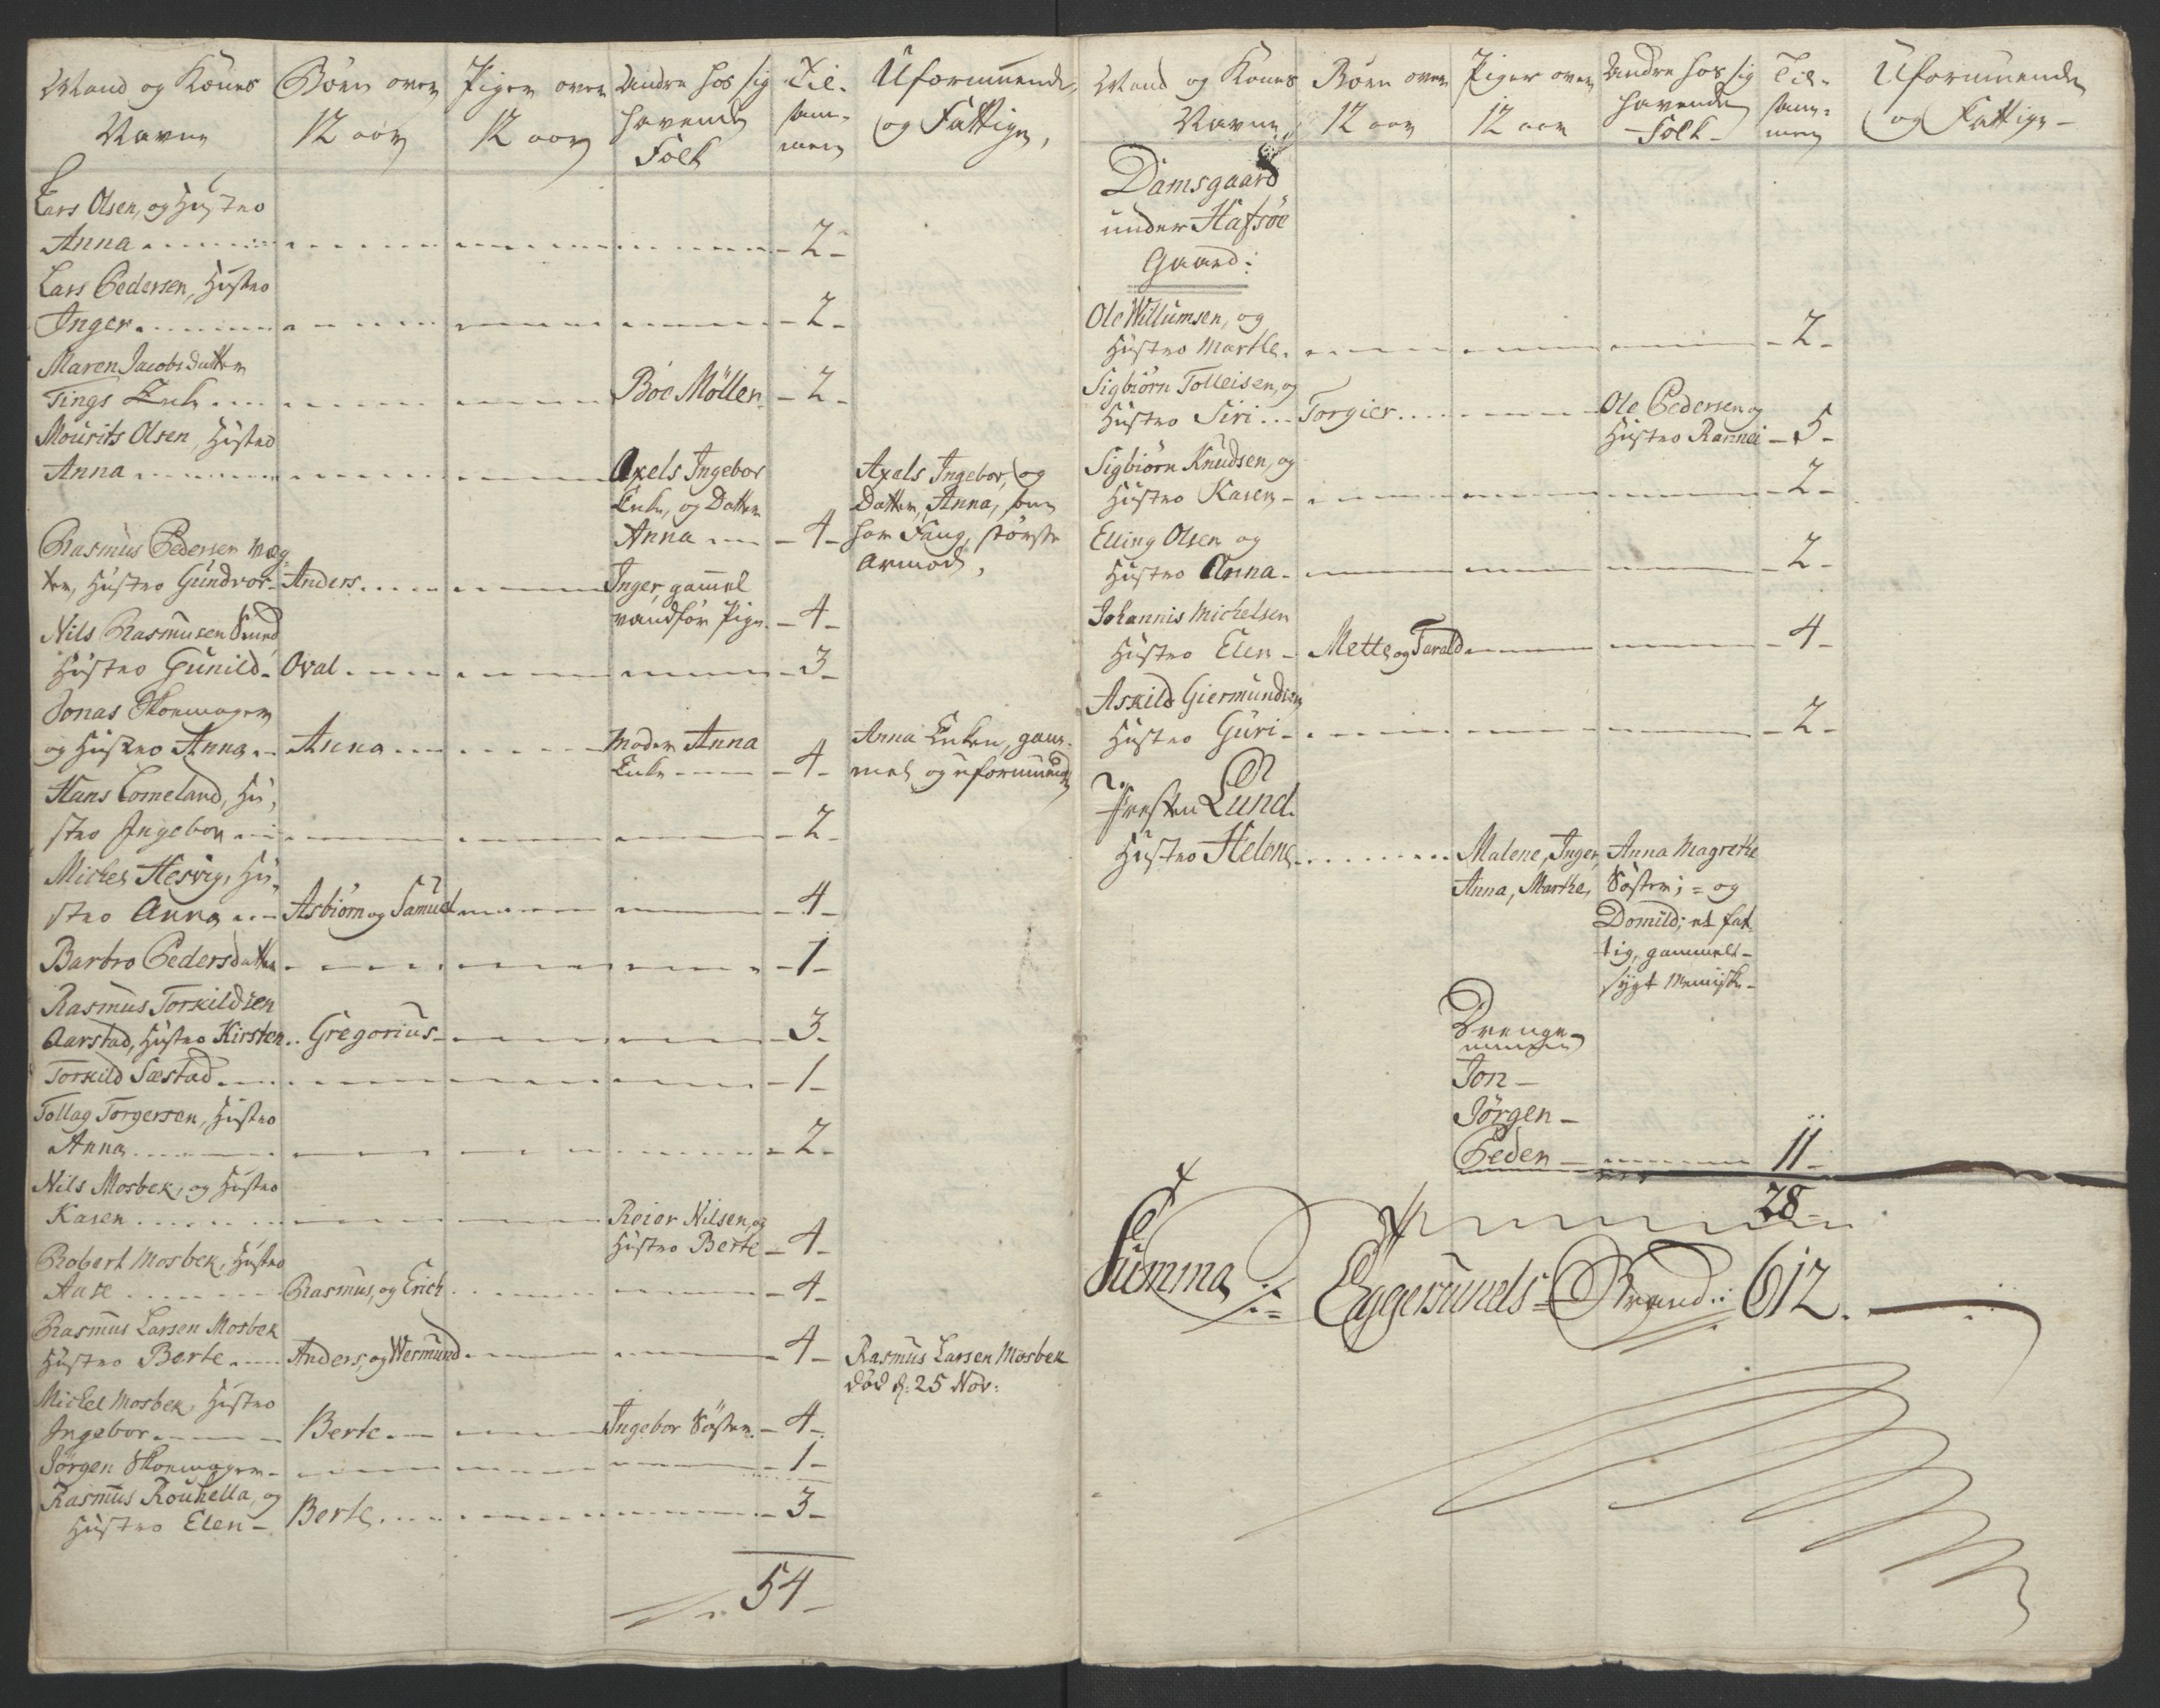 Mand og Kones Børn over Piger over Andre hos sig Til- Uformuende,
Navne 12 aar 12 aar havende sam- og Fattige,
Folk men
Lars Olsen, og Hustro
Anna - 2 -
Lars Pedersen, Hustro
Inger - 2 -
Maren Jacobsdatter
Tings Enke Böe Möller - 2 -
Mourits Olsen, Hustro
Anna Axels Ingebor Axels Ingebor, og
Enke, og Datter Datter, Anna, som
Anna - 4 - har Fang, største
armod,
Rasmus Pedersen Væg-
ter, Hustro Gundvor - Anders Inger, gammel
vandför Pige. - 4 -
Nils Rasmusen Smed
Hustro Gunild - Oval - 3 -
Jonas Skoemager
og Hustro Anna Anna Moder Anna Anna Enken, gam-
Enke - 4 - mel og uformuende
Hans Lomeland, Hu-
stro Ingebor - 2 -
Michel Hesvig, Hu-
stro Anna Asbiörn og Samuel - 4 -
Barbro Pedersdatter - 1 -
Rasmus Torkildsen
Aarstad, Hustro Kirsten Gregorius - 3 -
Torkild Sæstad - 1 -
Tollag Torgersen, Hustro
Anna - 2 -
Nils Mosbek, og Hustro
Karen Reier Nilsen, og
Hustro Berte - 4 -
Robert Mosbek, Hustro
Aase Rasmus, og Erich - 4 -
Rasmus Larsen Mosbek
Hustro Berte Anders, og Wermund - 4 - Rasmus Larsen Mosbek
död d: 25 Nov:
Michel Mosbek, Hustro
Ingebor Berte Ingebor Söster - 4 -
Jörgen Skoemager - 1 -
Rasmus Rouhella, og
Hustro Elen - Berte - 3 -
54 -
Mand og Kones Børn over Piger over Andre hos sig Til- Uformuende
Navne 12 aar 12 aar havende sam- og Fattige -
Folk - men
Damsgaard
under Hafsöe
Gaard:
Ole Willumsen, og
Hustro Marthe - 2 -
Sigbiörn Tolleisen, og
Hustro Siri Torgier Ole Pedersen og
Hustro Rannei - 5 -
Sigbiörn Knudsen, og
Hustro Karen - 2 -
Elling Olsen og
Hustro Anna - 2 -
Johannis Michelsen
Hustro Elen - Mette og Tarald - 4 -
Askild Giermundsen
Hustro Guri - 2 -
Presten Lund.
Hustro Helene Malene, Inger, Anna Magrethe
Anna, Marthe, Söster; = og
Domild; et fat-
tig, gammelt -
sygt Menniske -
Drenge
Jon -
Jörgen -
Peder - 11 -
28 -
Summa := Eggersunds = Strand: 612.